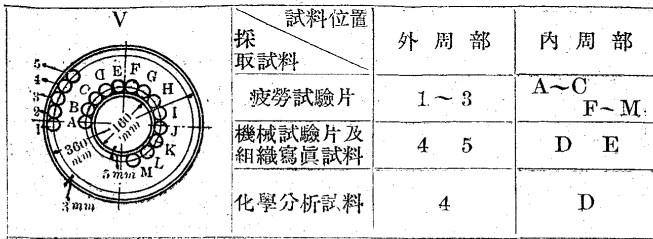 V
5
4
3
2
1
A
B
C
D
E
F
G
H
I
J
K
L
M
160
mm
360
mm
5mm
3mm
試料位置
採
取試料
外周部
內周部
疲勞試驗片
1～3
A～C
F～M
機械試驗片及
組織寫眞試料
4 5
D E
化學分析試料
4
D